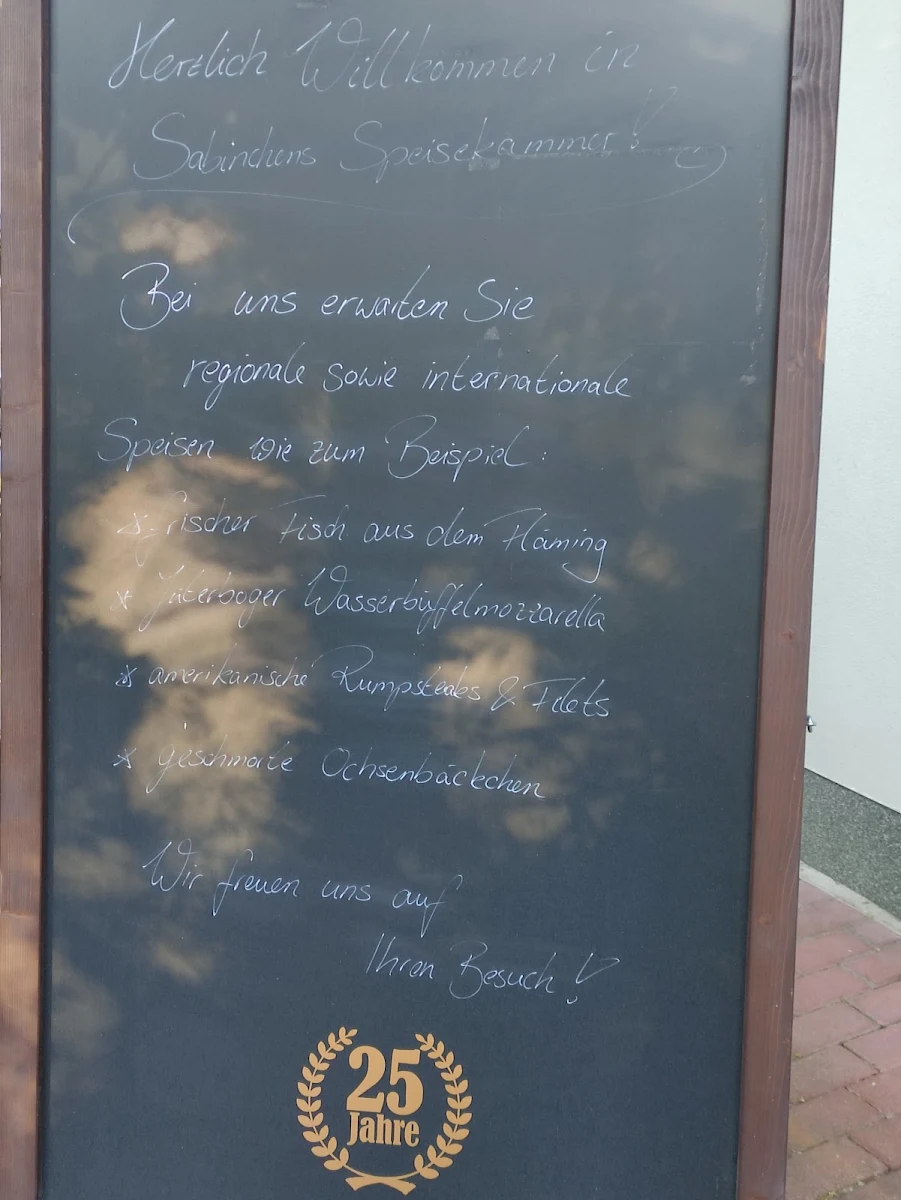 Herzlich Willkommen in
Sabinchens Speisekammer!
Bei uns erwarten Sie
regionale sowie internationale
Speisen wie zum Beispiel:
* frischer Fisch aus dem Fläming
* Jüterboger Wasserbüffelmozzarella
* amerikanische Rumpsteaks & Filets
* geschmorte Ochsenbäckchen
Wir freuen uns auf
Ihren Besuch!
25
Jahre